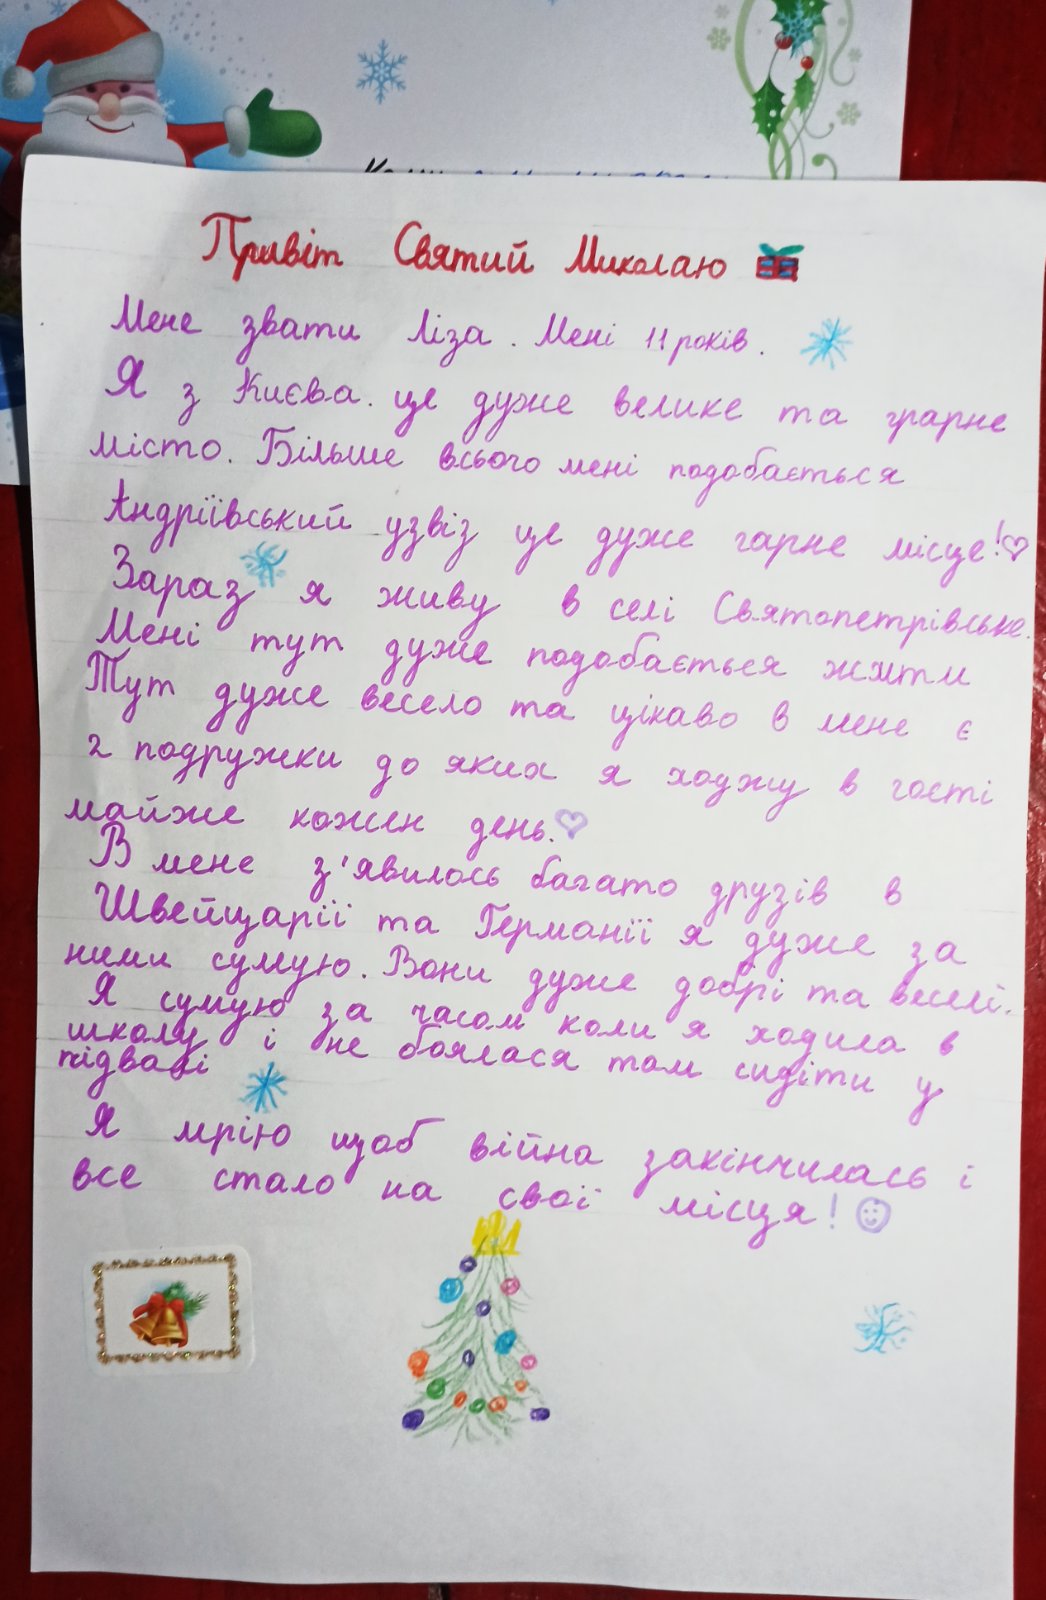 Кому
Привіт Святий Миколаю
Мене звати Ліза. Мені 11 років.
Я з Києва. це дуже велике та грарне
місто. Більше всього мені подобається
Андріївський узвіз це дуже гарне місце!
Зараз я живу в селі Святопетрівське.
Мені тут дуже подобається жити
Тут дуже весело та цікаво в мене є
2 подружки до яких я ходжу в гості
майже кожен день.
В мене з'явилось багато друзів в
Швейцарії та Германії я дуже за
ними сумую. Вони дуже добрі та веселі.
Я сумую за часом коли я ходила в
школу і не боялася там сидіти у
підвалі
Я мрію щоб війна закінчилась і
все стало на свої місця!